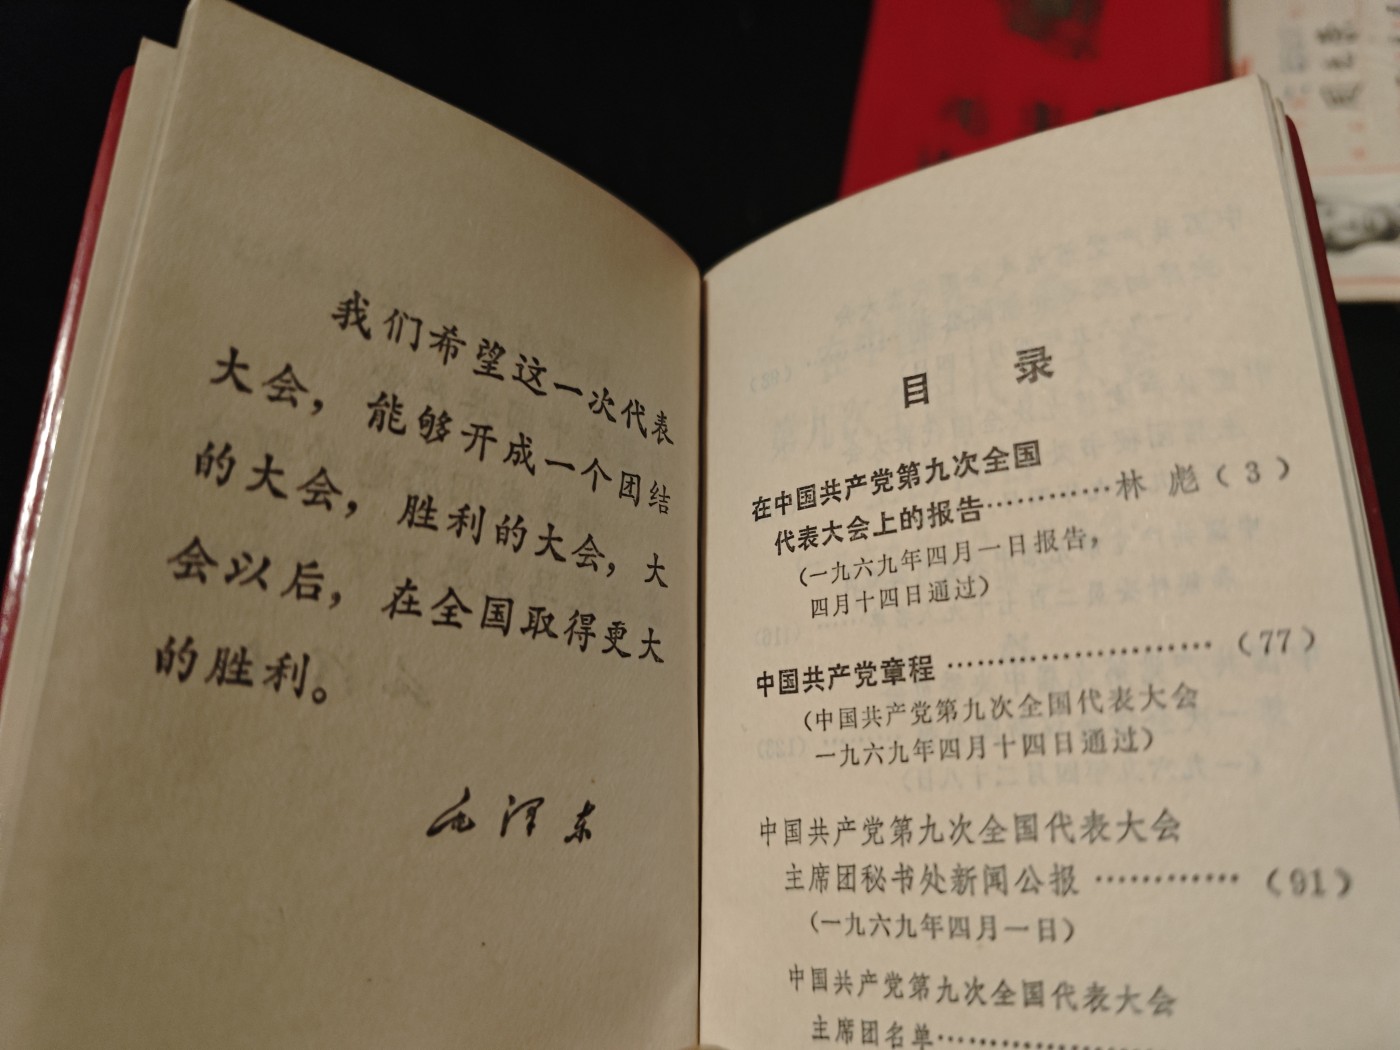 我们希望这一次代表
大会，能够开成一个团结
的大会，胜利的大会，大
会以后，在全国取得更大
的胜利。
毛泽东
目 录
在中国共产党第九次全国
代表大会上的报告…………林 彪（3）
（一九六九年四月一日报告，
四月十四日通过）
中国共产党章程……………………（77）
（中国共产党第九次全国代表大会
一九六九年四月十四日通过）
中国共产党第九次全国代表大会
主席团秘书处新闻公报…………（91）
（一九六九年四月一日）
中国共产党第九次全国代表大会
主席团名单……………